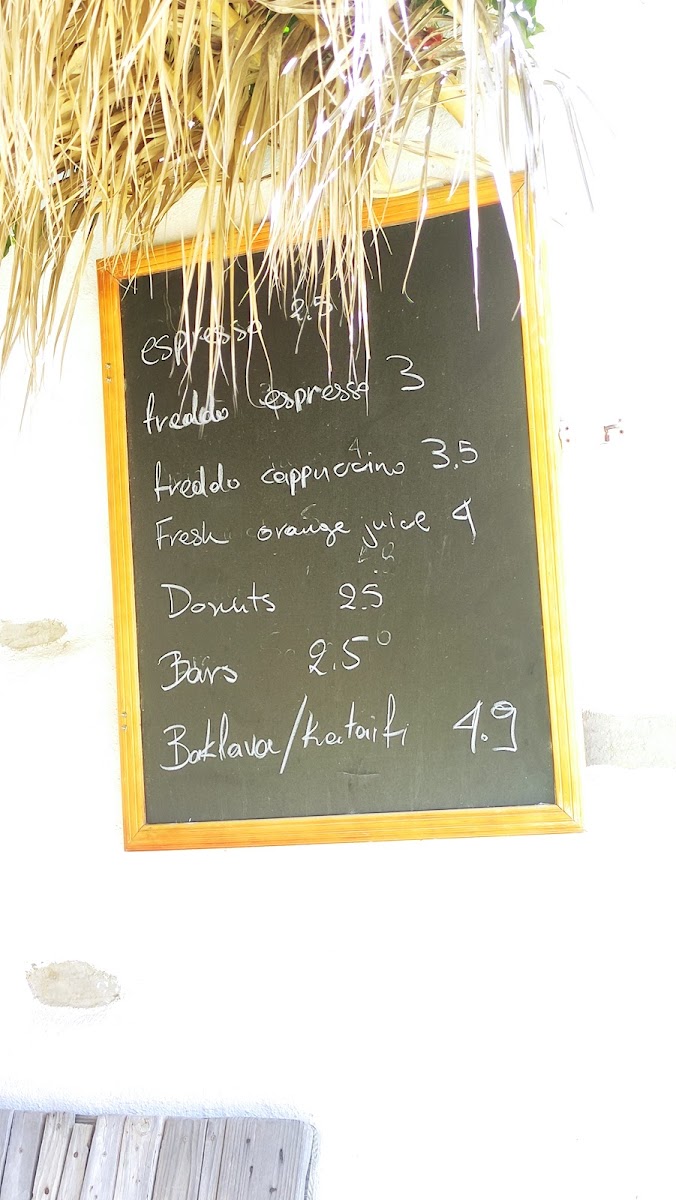 espresso 2.5
freddo espresso 3
freddo cappuccino 3.5
Fresh orange juice 4
Donuts 25
Bars 2.5
Baklava/kataifi 4.9